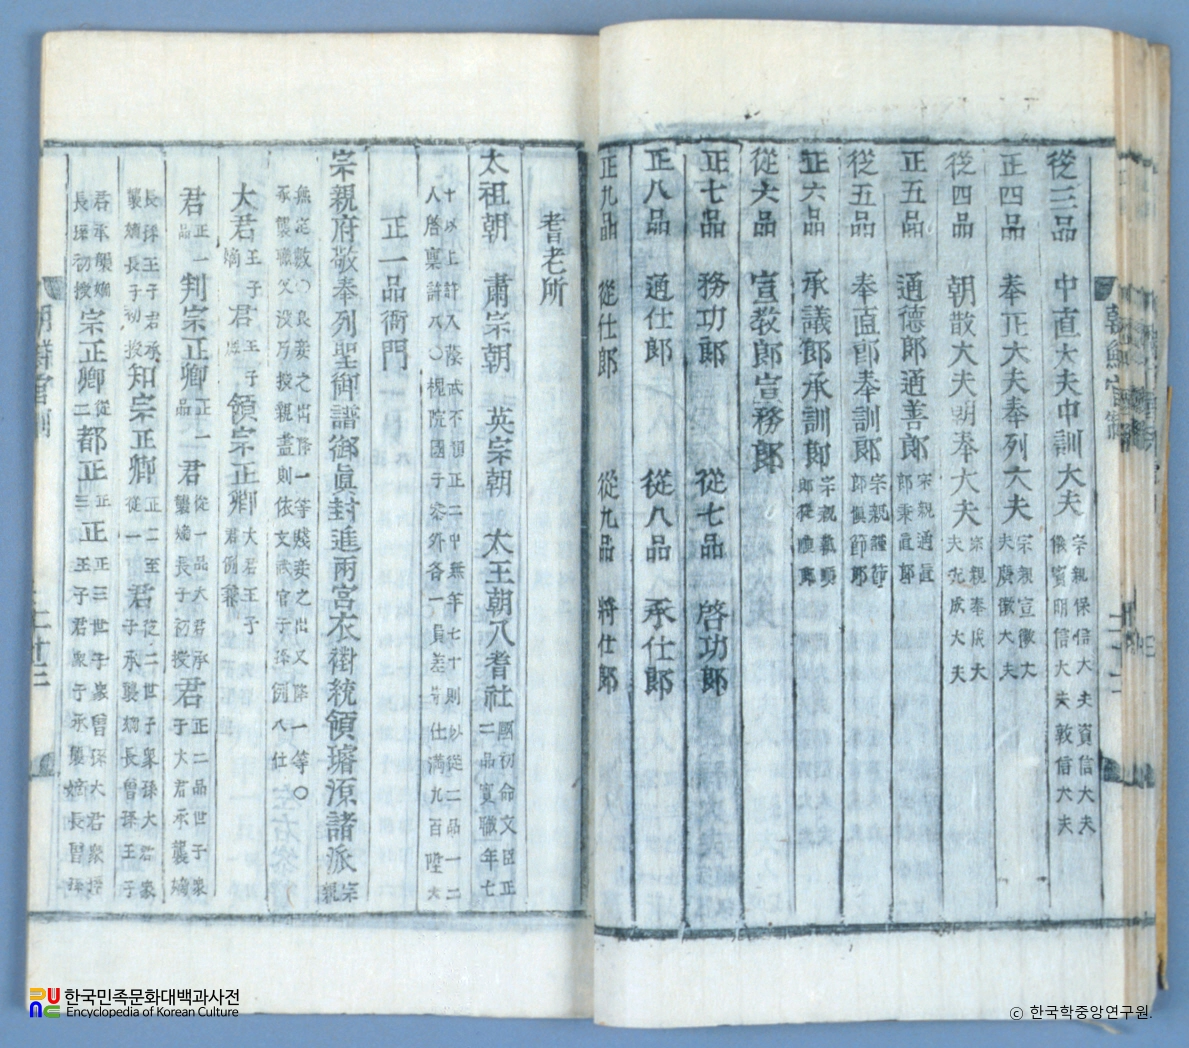 從三品 中直大夫中訓大夫 宗親保信大夫資信大夫 儀賓明信大夫敦信大夫
正四品 奉正大夫奉列大夫 宗親宣徽大夫廣徽大夫
從四品 朝散大夫朝奉大夫 宗親奉成大夫光成大夫
正五品 通德郎通善郎 宗親通直郎秉直郎
從五品 奉直郎奉訓郎 宗親謹節郎愼節郎
正六品 承議郎承訓郎 宗親執順郎從順郎
從六品 宣敎郎宣務郎
正七品 務功郎 從七品 啓功郎
正八品 通仕郎 從八品 承仕郎
正九品 從仕郎 從九品 將仕郎
耆老所
太祖朝 肅宗朝 英宗朝 太王朝入耆社 國初命文臣正二品實職年七
十以上許入蔭武不預正二中無年七十則以從二品一二人啓稟許入○槐院國子
正一品衙門
宗親府敬奉列聖御譜御眞封進兩宮衣襨統領璿源諸派 宗親
無定數○良妾之出降一等賤妾之出又降一等○承襲職父沒乃授親盡則依文武官子孫例入仕
大君 王子嫡 君 王子庶 領宗正卿 大君王子君例兼
君 正一品 判宗正卿 正一品 君 從一品大君承襲嫡長子初授 君 正二品世子衆子大君承襲嫡
長孫王子君承襲嫡長子初授 知宗正卿 正二至從一 君 從二世子衆孫大君衆子承襲嫡長曾孫王子
君承襲嫡長孫初授 宗正卿 從二 都正 正三 正 正三世子衆曾孫大君衆孫王子君衆子承襲嫡長曾孫
朝鮮官制
한국민족문화대백과사전
Encyclopedia of Korean Culture
ⓒ 한국학중앙연구원.